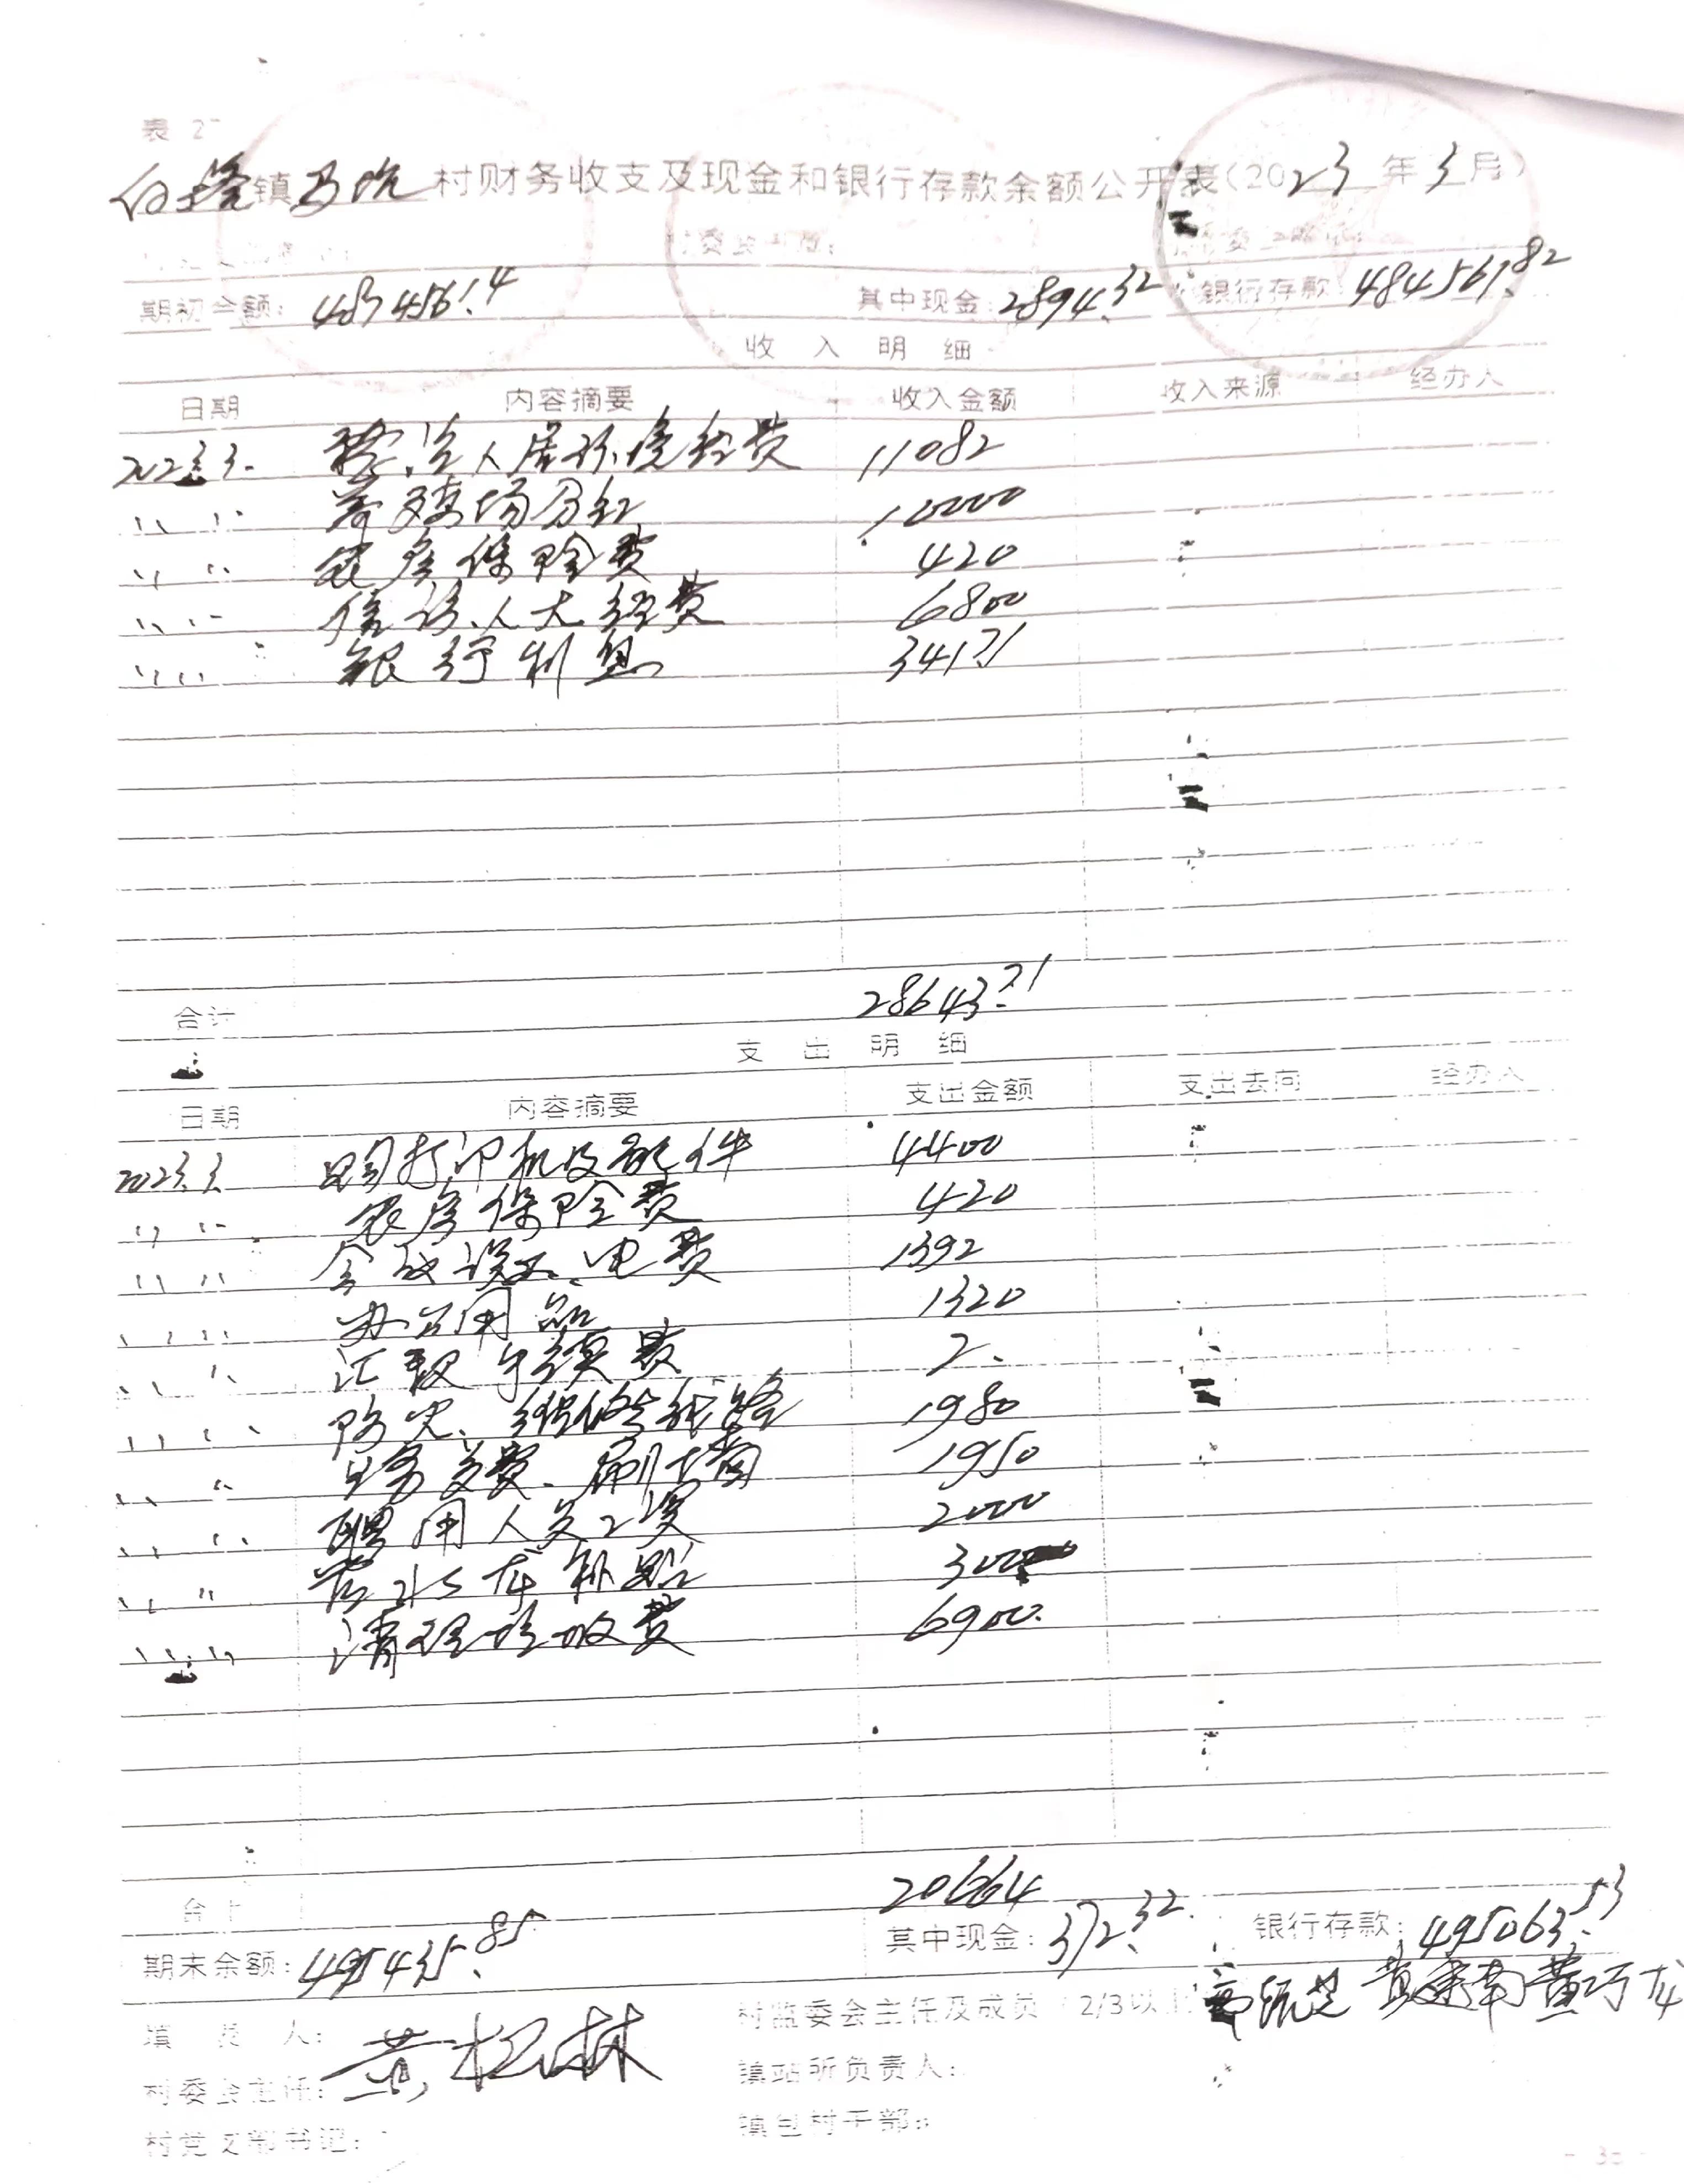 表 2
白 镇 马坑 村财务收支及现金和银行存款余额公开表(2023年3月)
期初余额: 487456.14 其中现金: 2894.32 银行存款: 484561.82
收 入 明 细
日期 内容摘要 收入金额 收入来源 经办人
2023.3. 整治人居环境经费 11082
〃 〃 养殖场分红 10000
〃 〃 农房保险费 420
〃 〃 信访、人大经费 6800
〃 〃 银行利息 341.71
合计 28643.71
支 出 明 细
日期 内容摘要 支出金额 支出去向 经办人
2023.3. 购打印机及配件 4400
〃 〃 农房保险费 420
〃 〃 会议误工、电费 1392
〃 〃 办公用品 1320
〃 〃 汇款手续费 2.
〃 〃 防火、维修线路 1980
〃 〃 误务费、刷墙 1950
〃 〃 聘用人员工资 2000
〃 〃 补贴 300
〃 〃 清理垃圾费 6900.
合计 20664
期末余额: 495435.85 其中现金: 372.32 银行存款: 495063.53
填 表 人: 村监委会主任及成员 2/3以上 黄建南 黄巧龙
村委会主任: 黄 林 镇站所负责人:
村党支部书记: 镇包村干部: